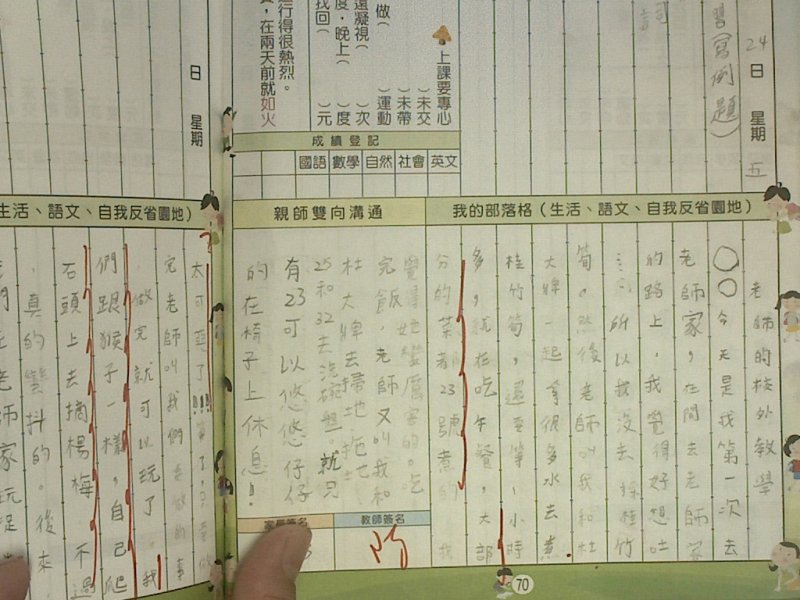 24日 星期五
習(寫例題)
上課要專心
( )未交
( )未帶
( )運動
( )次
( )度
( )元
做(
凝視(
度,晚上(
找回(
行得很熱烈。
,在兩天前就如火
成績登記
國語 數學 自然 社會 英文
我的部落格(生活、語文、自我反省園地)
老師的校外教學
○○今天是我第一次去
老師家,在開去老師家
的路上,我覺得好想吐
所以我沒去採桂竹
筍,然後老師叫我和杜
大牌一起拿很多水去煮
桂竹筍,還要等1小時
多,就在吃午餐,大部
分的菜都23號煮的,我
覺得她蠻厲害的。吃
完飯,老師又叫我和
杜大牌去掃地拖地,
25和32去洗碗盤。就只
有23可以悠悠仔仔
的在椅子上休息!
親師雙向溝通
教師簽名
70
日 星期
生活、語文、自我反省園地)
太可惡了!!!算了,只要做
完老師叫我們要做的事
,做完就可以玩了。我
們跟猴子一樣,自己爬
石頭上去摘楊梅,不過
,真的蠻抖的。後來